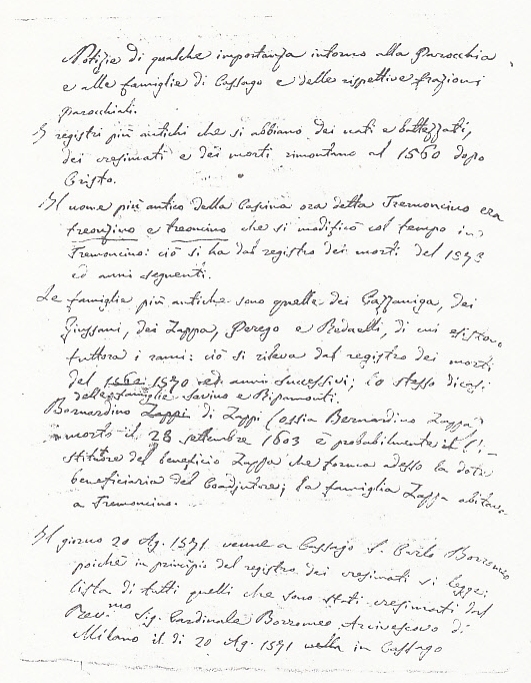 Notizie di qualche importanza intorno alla Parocchia
e alle famiglie di Cassago e delle rispettive frazioni
parocchiali.
I registri più antichi che si abbiano dei nati e battezzati,
dei cresimati e dei morti rimontano al 1560 dopo
Cristo.
Il nome più antico della Cascina ora detta Tremoncino era
treonzino e treoncino che si modificò col tempo in
Tremoncino: ciò si ha dal registro dei morti del 1573
ed anni seguenti.
Le famiglie più antiche sono quelle dei Gazzaniga, dei
Giussani, dei Zappa, Perego e Redaelli, di cui esistono
tuttora i rami: ciò si rileva dal registro dei morti
del 1562 1570 ed anni successivi; lo stesso dicasi
delle famiglie Savino e Ripamonti.
Bernardino Zappa di Zappi (ossia Bernardino Zappa)
morto il 28 settembre 1603 è probabilmente il l'i-
stitutore del beneficio Zappa che forma adesso la dote
beneficiaria del Coadjutore; la famiglia Zappa abitava
a Tremoncino.
Il giorno 20 Ag. 1571 venne a Cassago S. Carlo Borromeo
poichè in principio del registro dei cresimati si legge:
lista di tutti quelli che sono stati cresimati dal
Rev.mo Sig. Cardinale Borromeo Arcivescovo di
Milano il dì 20 Ag. 1571 in Cassago